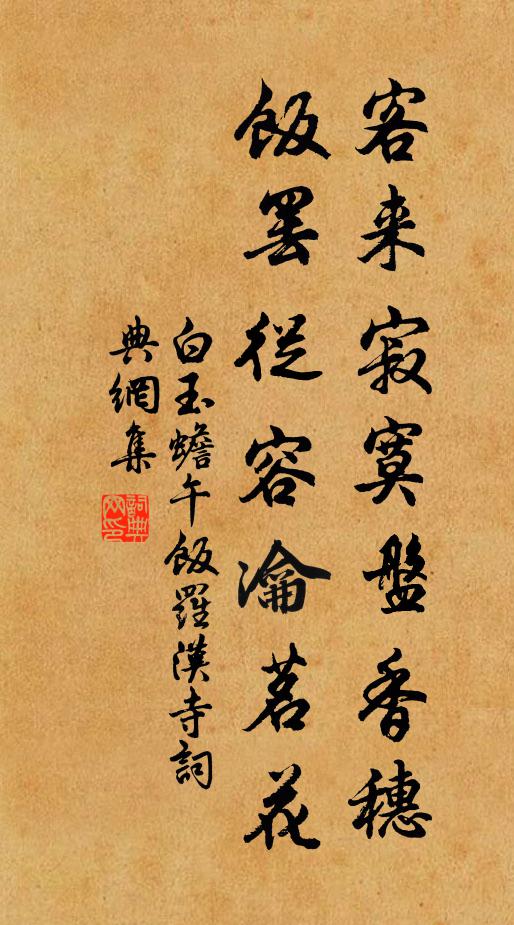 客来寂寞盤香穗
飯罷從容瀹茗花
白玉蟾午飯羅漢寺詞
典網集
詞典網印